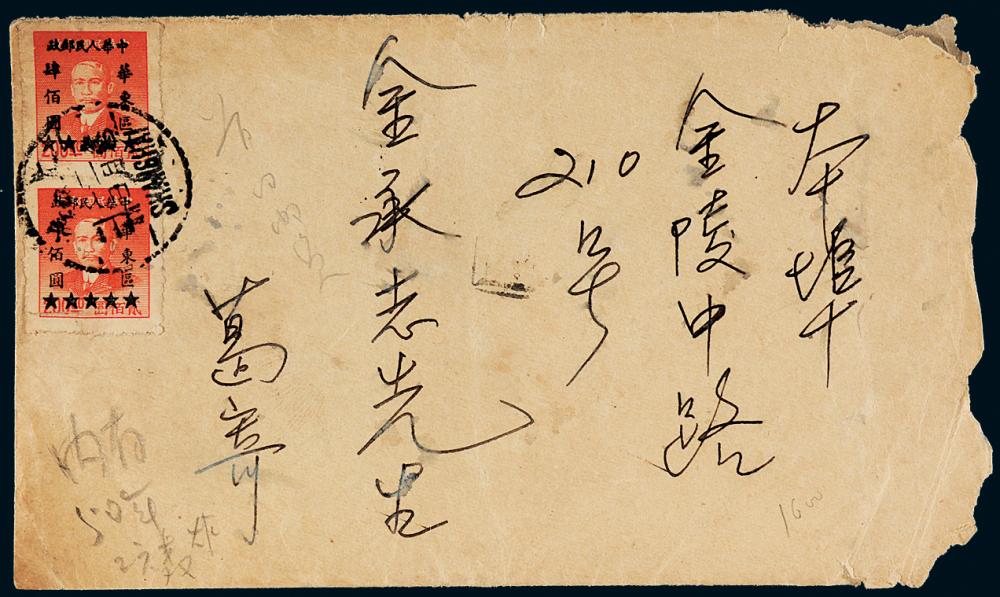 本埠
金陵中路
210号
金承志先生
葛寄
中華人民郵政
華東區
肆佰圓
★★★★★
中華人民郵政
華東區
肆佰圓
★★★★★
SHANGHAI
内有
50年
1600